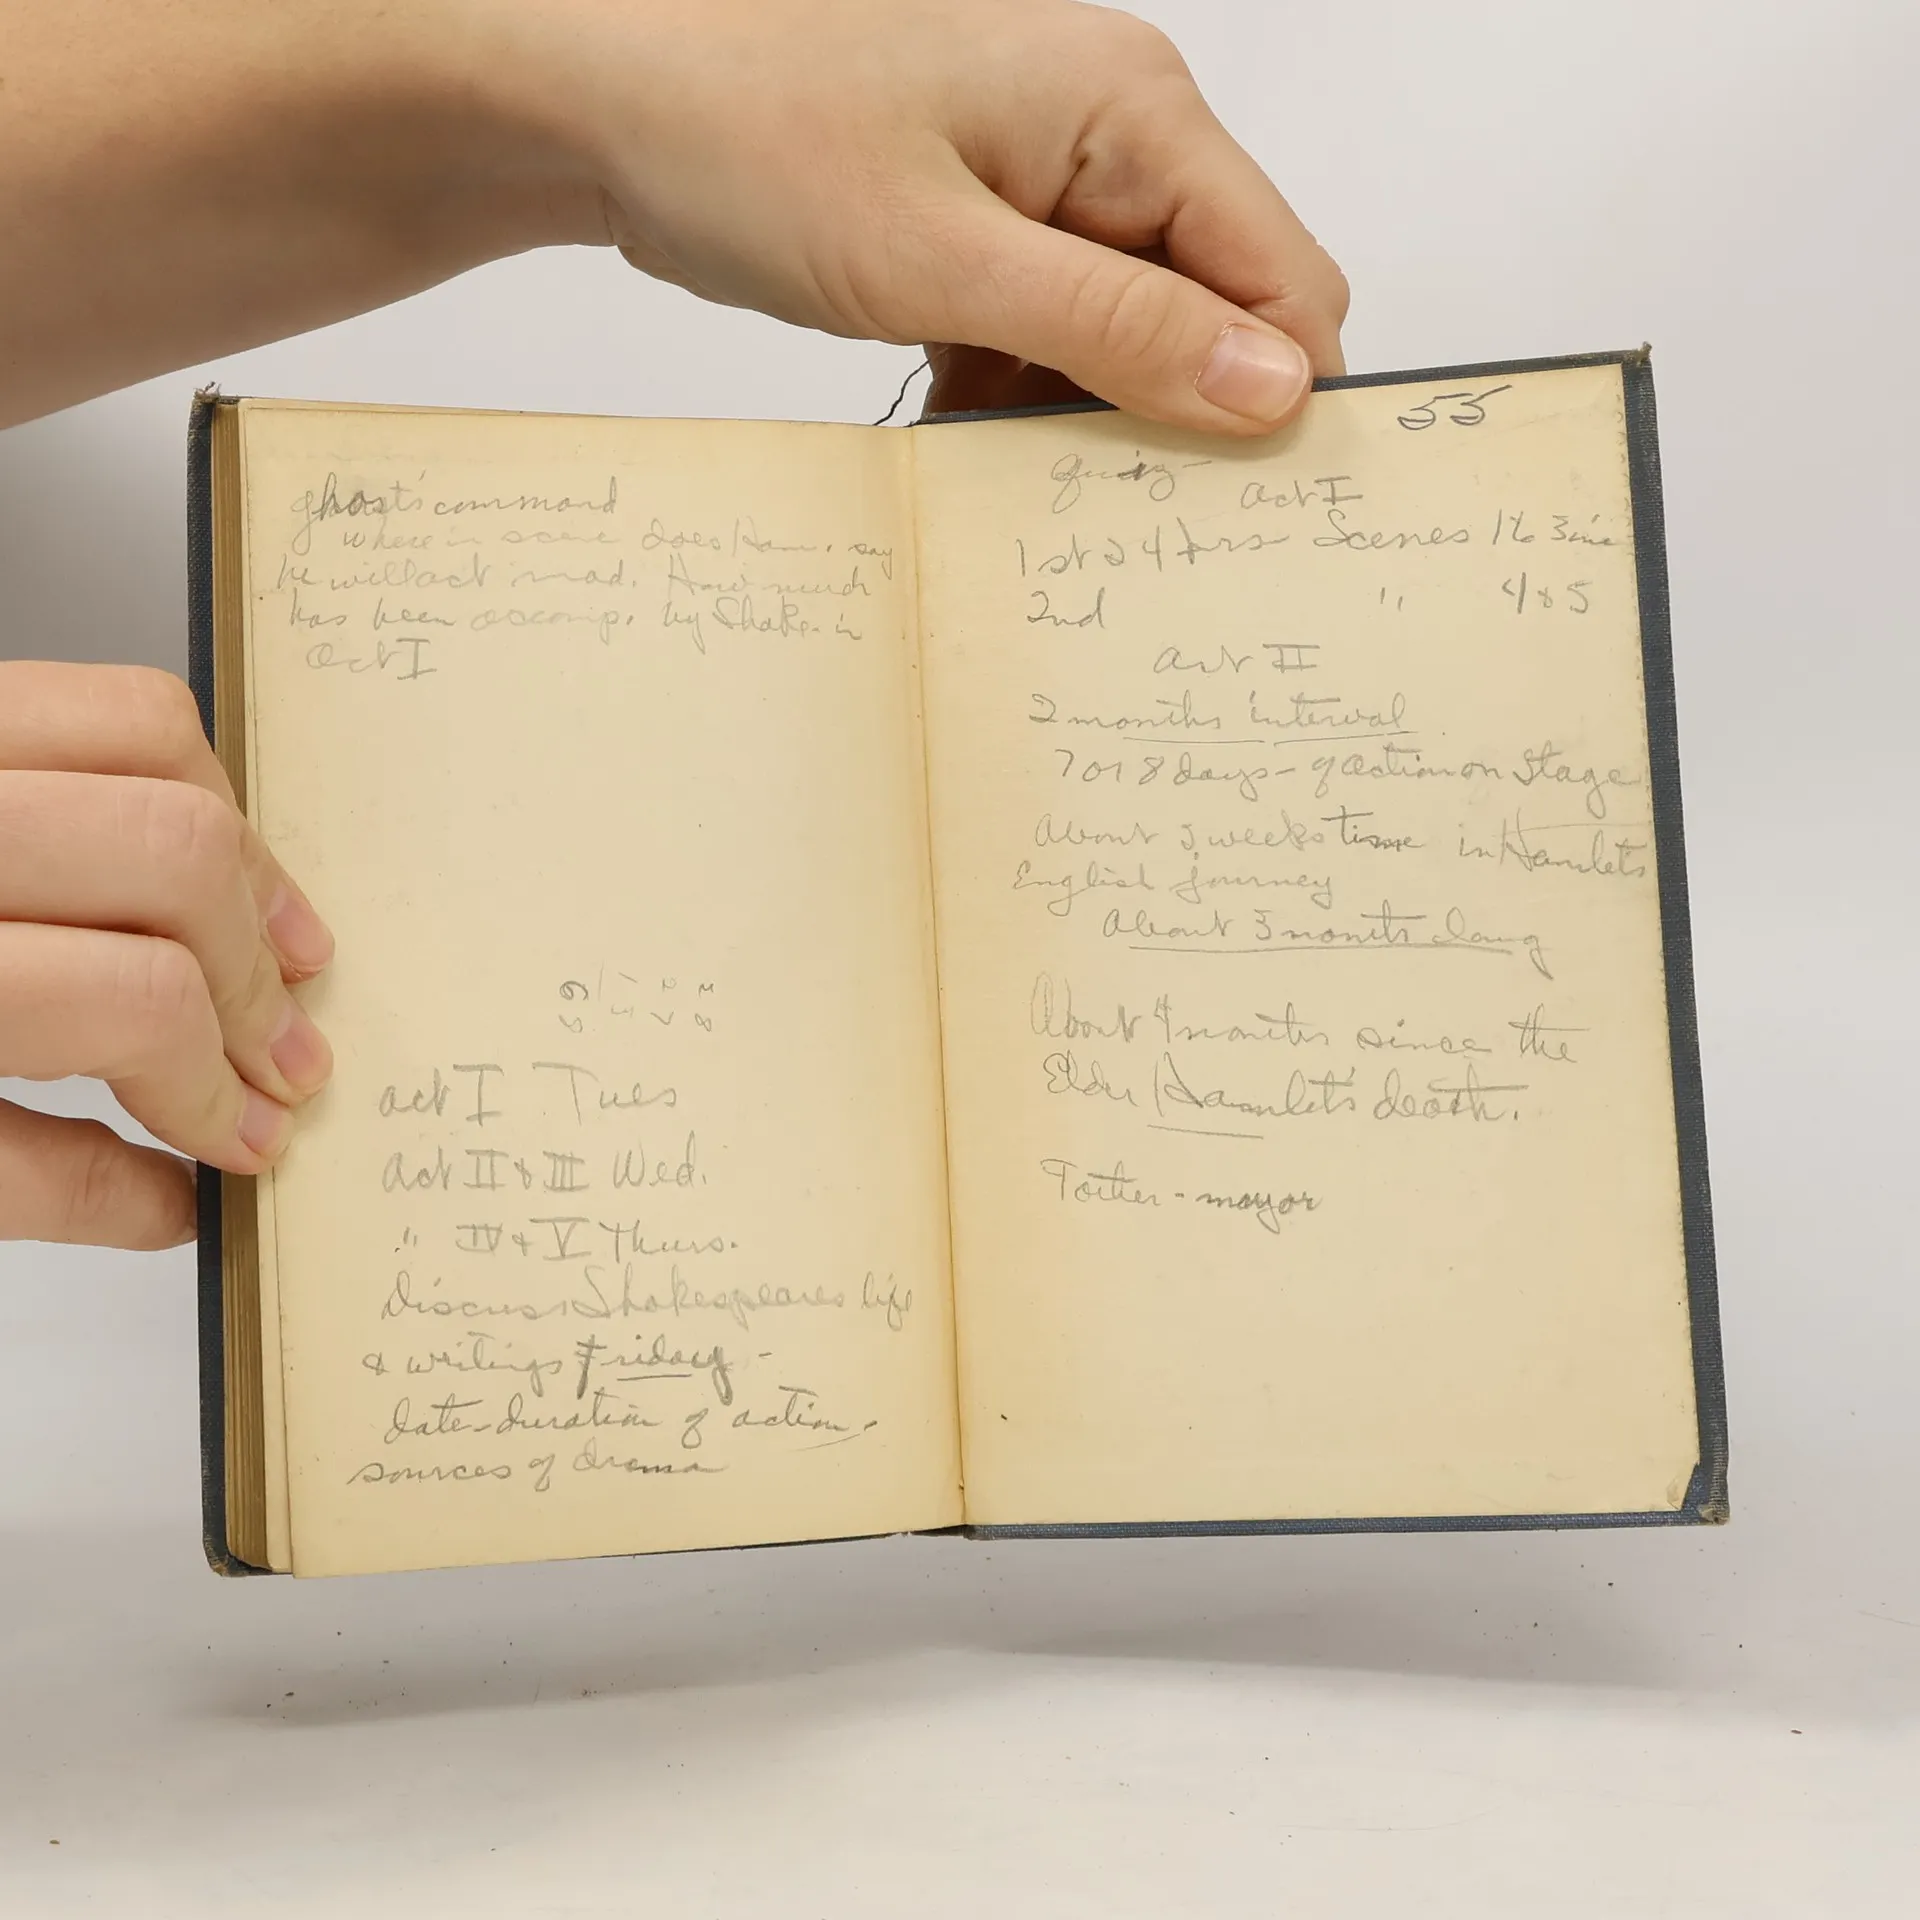 ghost's command
where in scene does Ham. say
he will act mad. How much
has been accomp. by Shake. in
Act I
Act I Tues
Act II & III Wed.
" IV & V Thurs.
Discuss Shakespeares life
& writings Friday -
date-duration of action.
sources of drama
55
Quiz-
Act I
1st 24 hrs Scenes 1 to 3 inc
2nd " 4 & 5
Act II
2 months interval
7 or 8 days - of action on stage
About weeks time in Hamlet's
English journey
About 3 months long
About 4 months since the
Elder Hamlet's death.
- mayor